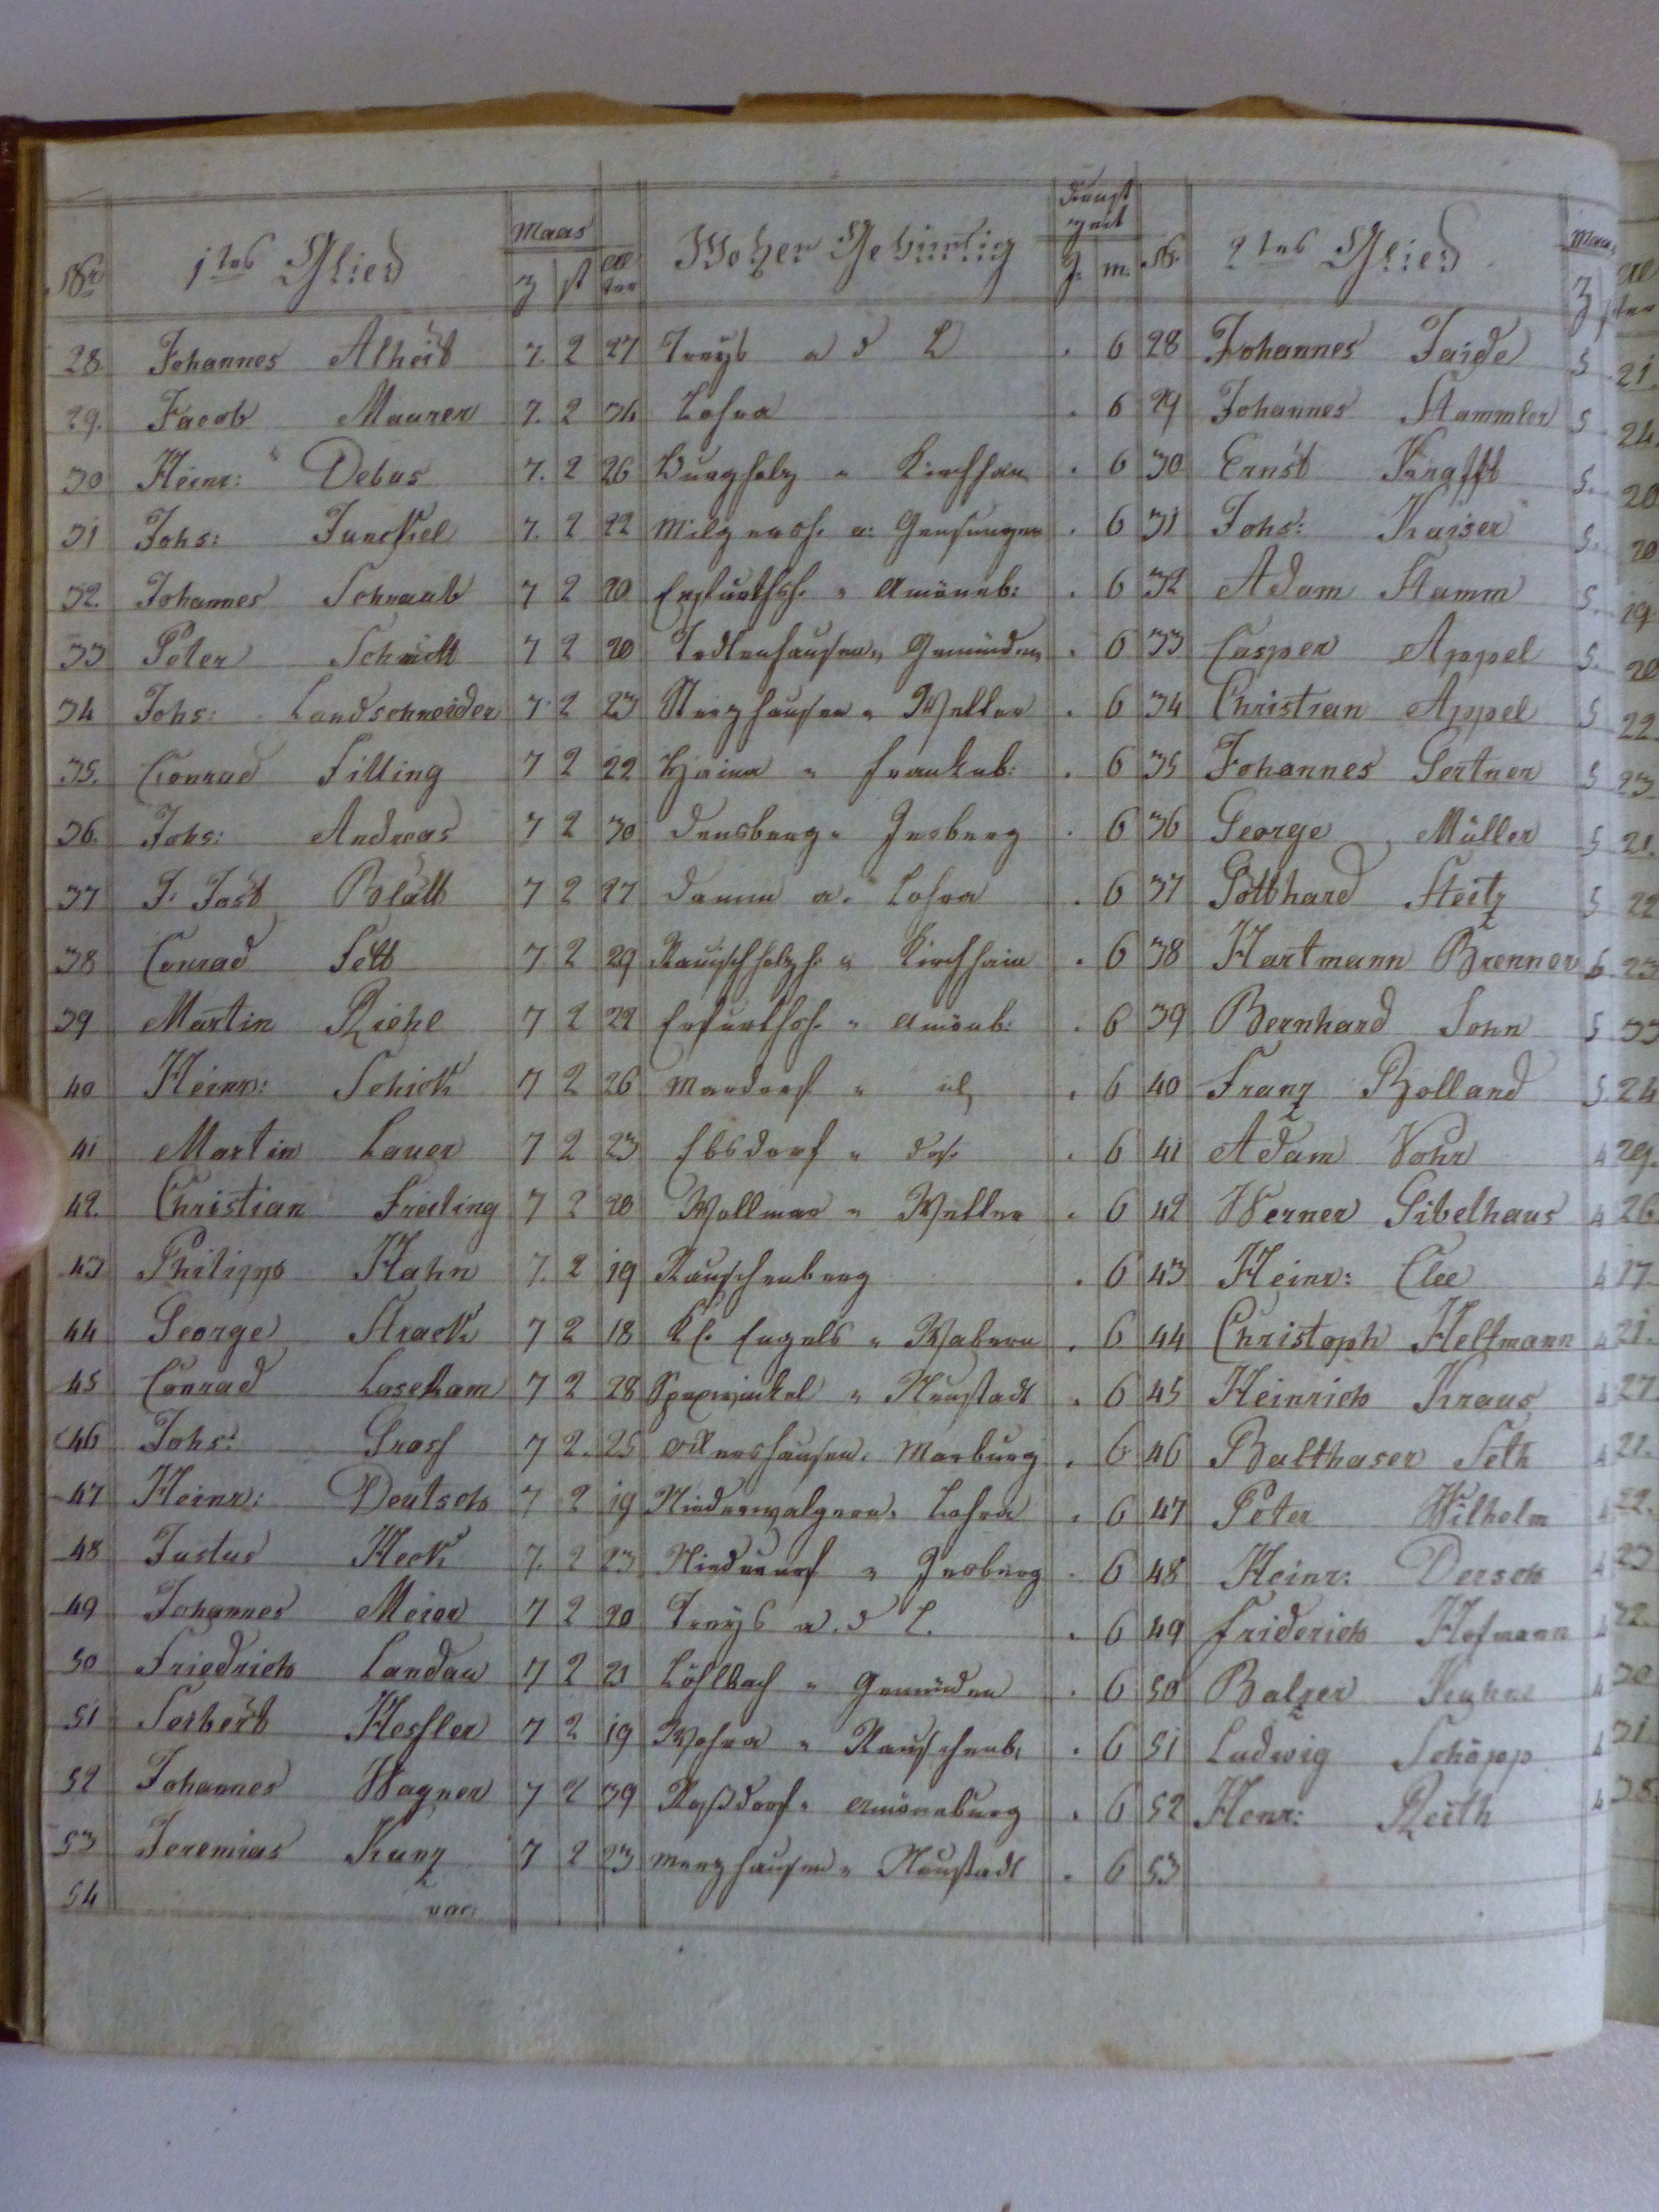 Nr. 1tes Glied Maas Z st Al ter Woher Gebürtig Dienst zeit J. m. Nr. 2tes Glied Maas Z Al ter
28. Johannes Alheit 7. 2 27 Treys a d L . 6 28 Johannes Taide 5 21.
29. Jacob Maurer 7. 2 34 Lohra . 6 29 Johannes Stammler 5 24.
30 Heinr: Debus 7. 2 26 Burgholz " Kirchhain . 6 30 Ernst Krafft 5. 20
31 Johs: Junckel 7. 2 22 a: Gensungen . 6 31 Johs: Kaiser 5. 20
32. Johannes Schraub 7 2 20 Erfurthsh. " Amöneb: . 6 32 Adam Stamm 5. 19
33 Peter Schmitt 7 2 20 Todtenhausen " Gemünden . 6 33 Casper Appel 5. 20
34 Johs: Landschneider 7 2 23 Sterzhausen " Wetter . 6 34 Christian Appel 5 22
35. Conrad Filling 7 2 22 Haina " Frankenb: . 6 35 Johannes Gertner 5 23
36. Johs: Andreas 7 2 30 Densberg " Jesberg . 6 36 George Müller 5 21.
37 J. Jost Blatt 7 2 27 Damm a. Lohra . 6 37 Gotthard Steitz 5 22
38 Conrad Fett 7 2 29 Rauischholzh. " Kirchhain . 6 38 Hartmann Brenner 5 23
39 Martin Riehl 7 2 22 Erfurthsh. " Amöneb: . 6 39 Bernhard Sohn 5 33
40 Heinr: Schick 7 2 26 Mardorf " . 6 40 Franz Bolland 5. 24
41 Martin Lauer 7 2 23 Ebsdorf " . 6 41 Adam Vohr 4 29.
42. Christian Freiling 7 2 20 Wollmar " Wetter . 6 42 Werner Gibelhaus 4 26.
43 Philipps Hahn 7. 2 19 Rauschenberg . 6 43 Heinr: Clee 4 17
44 George Strack 7 2 18 Kl. Englis " Wabern . 6 44 Christoph Heltmann 4 21.
45 Conrad Losekam 7 2 28 Speckwinkel " Neustadt . 6 45 Heinrich Kraus 4 27.
46 Johs: Grosf 7 2. 25 Marburg . 6 46 Balthaser Seth 4 21.
47 Heinr: Deutsch 7 2 19 Niederwalgern " Lohra . 6 47 Peter Wilhelm 4 22.
48 Justus Heck 7. 2 23 Niederurf " Jesberg . 6 48 Heinr: Dersch 4 23
49 Johannes Meier 7 2 20 Treys a. d L. . 6 49 Friderich Hofmann 4 32.
50 Friedrich Landau 7 2 21 Löhlbach " Gemünden . 6 50 Balzer 4 30
51 Seibert Hesfler 7 2 19 Wohra " Rauschenb: . 6 51 Ludwig Schöpp 4 31
52 Johannes Wagner 7 2 39 Roßdorf " Amöneburg . 6 52 Henr: Reith 4 35.
53 Jeremias Kunz 7 2 23 Merzhausen " Neustadt . 6 53
54 vac.